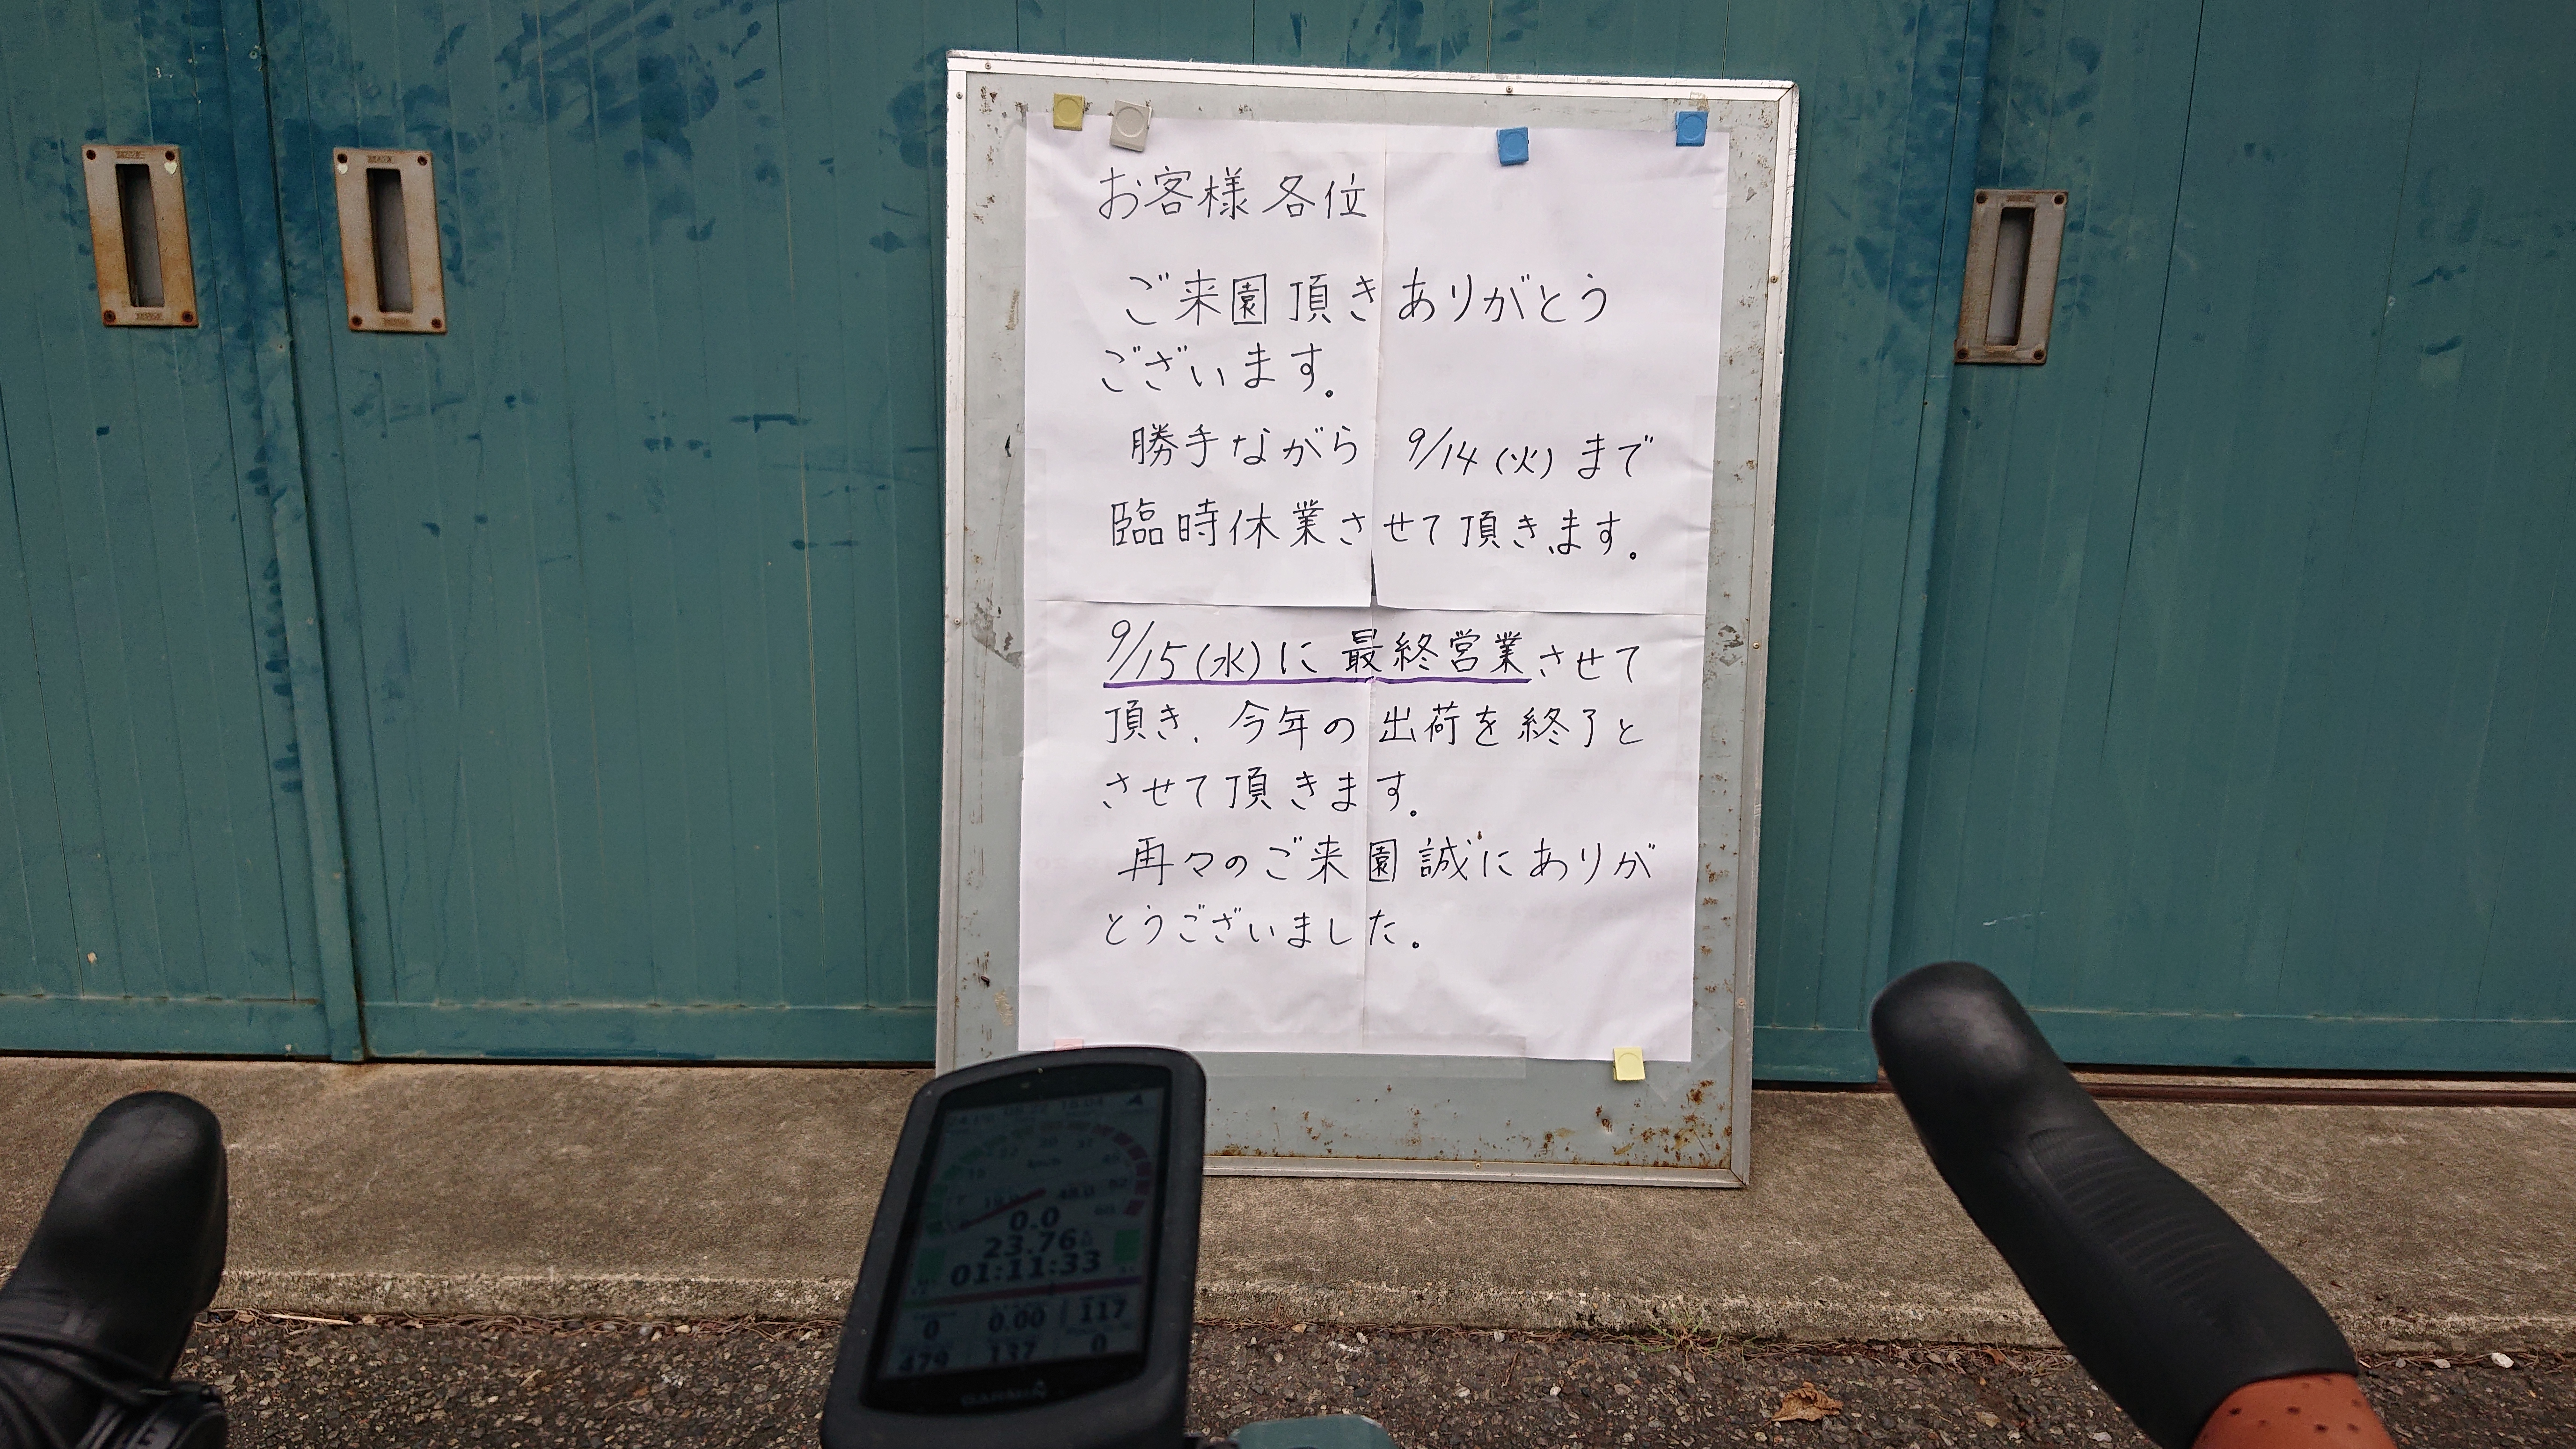 お客様各位
ご来園頂きありがとう
ございます。
勝手ながら 9/14(火)まで
臨時休業させて頂きます。
9/15(水)に最終営業させて
頂き、今年の出荷を終了と
させて頂きます。
再々のご来園誠にありが
とうございました。
0.0
23.76
01:11:33
0 0.00 117
479 137 0
GARMIN